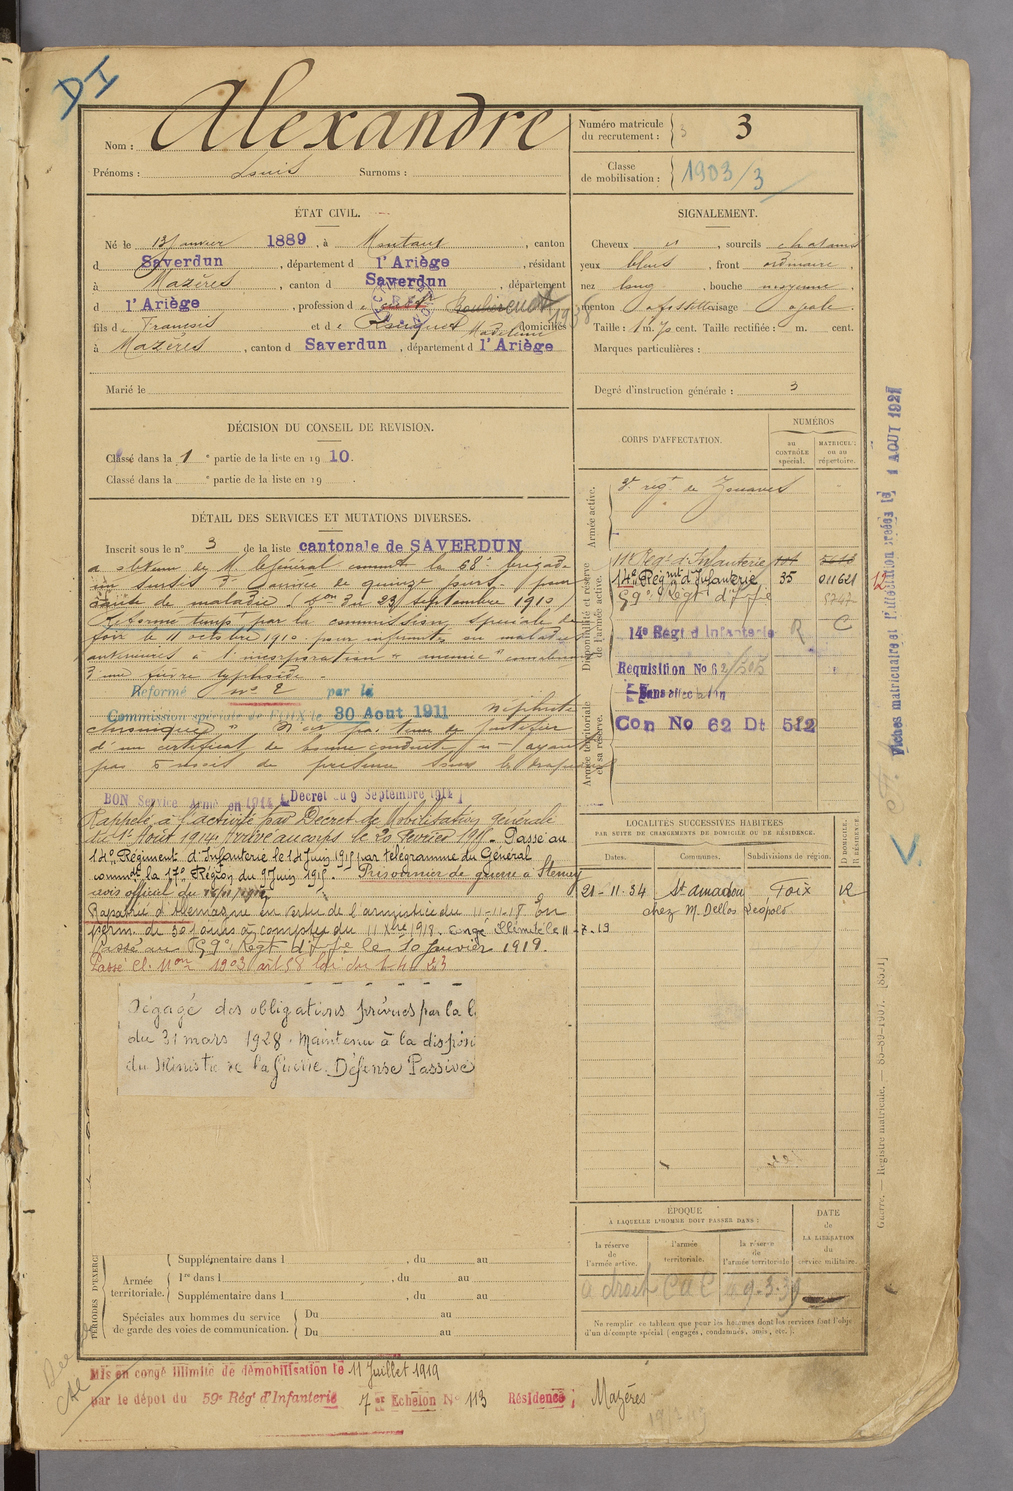 DI
Nom : Alexandre
Prénoms : Louis Surnoms :
Numéro matricule du recrutement : 3
Classe de mobilisation : 1903/3
ÉTAT CIVIL.
Né le 13 Janvier 1889, à Montaut, canton
d Saverdun, département d l'Ariège, résidant
à Mazères, canton d Saverdun, département
d l'Ariège, profession d
fils de François et de Madeleine domiciliés
à Mazères, canton d Saverdun, département d l'Ariège
Marié le
SIGNALEMENT.
Cheveux, sourcils chatains
yeux bleus, front ordinaire,
nez long, bouche moyenne,
menton visage ovale.
Taille : 1 m. 70 cent. Taille rectifiée : m. cent.
Marques particulières :
Degré d'instruction générale : 3
DÉCISION DU CONSEIL DE REVISION.
Classé dans la 1e partie de la liste en 1910.
Classé dans la e partie de la liste en 19 .
DÉTAIL DES SERVICES ET MUTATIONS DIVERSES.
Inscrit sous le n° 3 de la liste cantonale de SAVERDUN
a obtenu de M. le Général commt la 68e brigade
un sursis d'arrivée de quinze jours pour
cause de maladie (don du 23 septembre 1910)
Réformé tempre par la commission spéciale de
Foix le 11 octobre 1910 pour infirmités ou maladies
antérieures à l'incorporation "anémie"
d'une fièvre typhoïde.
Réformé n° 2 par la
Commission spéciale de FOIX le 30 Aout 1911 néphrite
chronique" N'est pas tenu de justifier
d'un certificat de bonne conduite, n'ayant
pas 3 mois de présence sous les drapeaux
BON Service Armé en 1914 (Decret du 9 Septembre 1914)
Rappelé à l'activité par Décret de Mobilisation Générale
du 1er Août 1914. Arrivé au corps le 20 Février 1915. Passé au
14e Régiment d'Infanterie le 14 Juin 1915 par télégramme du Général
commdt la 17e Région du 9 Juin 1915. Prisonnier de guerre à Stenay
avis officiel du
Rapatrié d'Allemagne en vertu de l'armistice du 11-11-18. En
perm. de 30 jours à compter du 11 Xbre 1918. Congé illimité le 11-7-19
Passé au 59e Regt d'Inf ie le 10 Janvier 1919.
Passé Cl. Mon 1903 art 58 loi du 1-4-23
Dégagé des obligations prévues par la l.
du 31 mars 1928. Maintenu à la disposi
du Ministre de la Guerre. Défense Passive
CORPS D'AFFECTATION.
NUMÉROS
au CONTRÔLE spécial.
MATRICULE ou au répertoire.
Armée active.
2e régt de Zouaves
Disponibilité et réserve de l'armée active.
Regt d'Infanterie
14e Régmt d'Infanterie 35 011621
59e Regt d'Inf ie
14e Régt d'Infanterie R C
Requisition No 62/505
Sans affectation
Armée territoriale et sa réserve.
Con No 62 Dt 512
Fiches matriculaire et d'affectation créées le 1 AOUT 1927
12
LOCALITÉS SUCCESSIVES HABITÉES
PAR SUITE DE CHANGEMENTS DE DOMICILE OU DE RÉSIDENCE.
Dates. Communes. Subdivisions de région. D DOMICILE. R RÉSIDENCE.
21-11-34 St Amadou Foix R
chez M. Dellos Léopold
ÉPOQUE
À LAQUELLE L'HOMME DOIT PASSER DANS :
la réserve de l'armée active.
l'armée territoriale.
la réserve de l'armée territoriale
DATE de LA LIBÉRATION du service militaire.
a droit C a C
Ne remplir ce tableau que pour les hommes dont les services font l'objet
d'un décompte spécial (engagés, condamnés, omis, etc.).
PÉRIODES D'EXERCI
Armée territoriale.
Supplémentaire dans l , du au
1re dans l , du au
Supplémentaire dans l , du au
Spéciales aux hommes du service de garde des voies de communication.
Du au
Du au
Mis en congé illimité de démobilisation le 11 Juillet 1919
par le dépot du 59e Rég' d'Infanterie 7e Echelon N° 113 Résidence : Mazères
Guerre. — Registre matricule. — 85-89-1907. [8301]